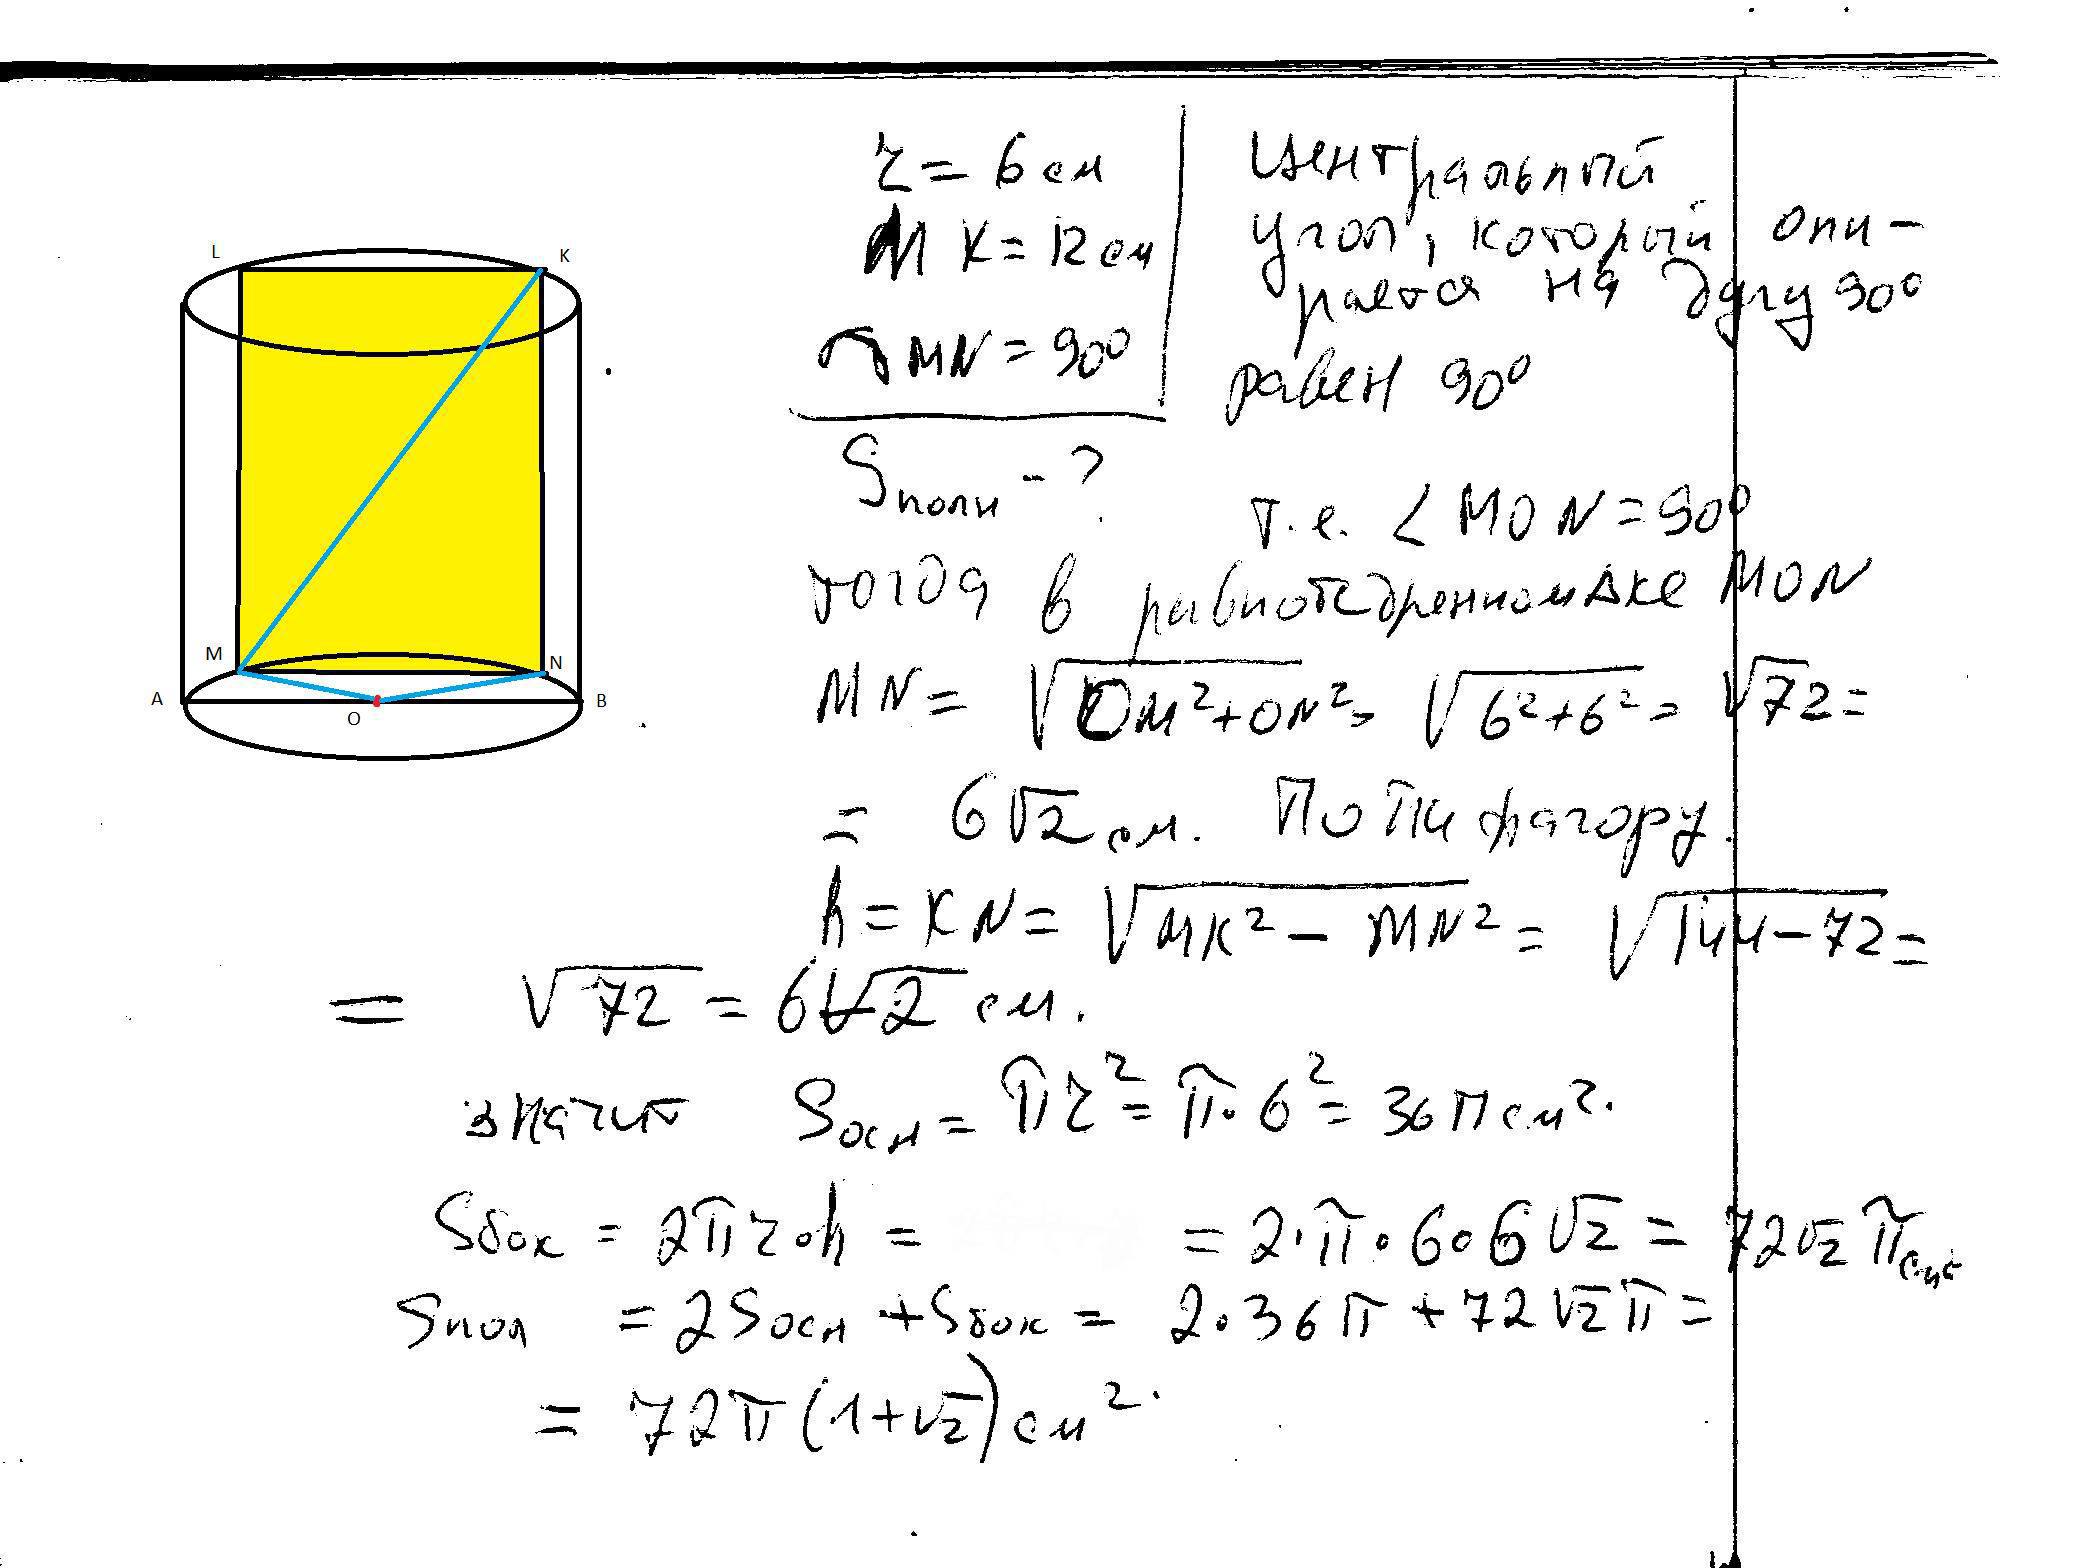 L
K
M
N
A
O
B
r = 6 см
MK = 12 см
◠MN = 90°
Sполн - ?
Центральный
угол, который опи-
рается на дугу 90°
равен 90°
т.е. ∠MON = 90°
тогда в равнобедренном Δке MON
MN = √(OM²+ON²) = √(6²+6²) = √72 =
= 6√2 см. По Пифагору.
h = KN = √(MK² - MN²) = √(144-72) =
= √72 = 6√2 см.
значит Sосн = πr² = π·6² = 36π см².
Sбок = 2πr·h = = 2·π·6·6√2 = 72√2 π см²
Sпол = 2Sосн + Sбок = 2·36π + 72√2π =
= 72π(1+√2) см².